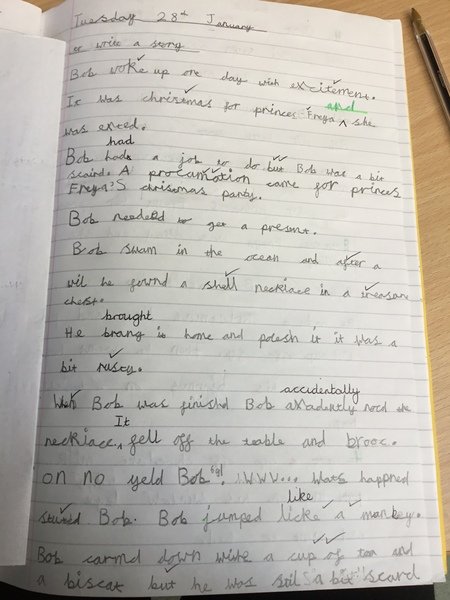 Tuesday 28th January
to write a story
Bob woke up one day with excitement.
and
It was christmas for princes Freya ^ she
was exted.
had
Bob hads a job to do but Bob was a bit
scaird. A proclamation came for princes
Freya'S christmas party.
Bob needed to get a present.
Bob swam in the ocean and after a
wil he fownd a shell necklace in a treasure
chest.
brought
He brang it home and polesh it it was a
bit rusty.
accidentally
When Bob was finishd Bob axadently nocd the
It
necklace. ^ fell off the table and brooc.
on no yeld Bob "6g! WWW... wats happned
stated Bob. Bob jumped licke a monkey.
like
Bob carmd down with a cup of tea and
a biscat but he was still a bit scard